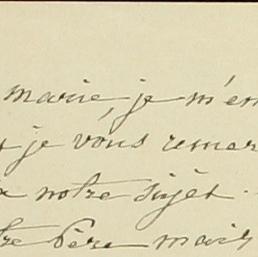 marié, je m'en
je vous remer
notre sujet.
tre Père mais